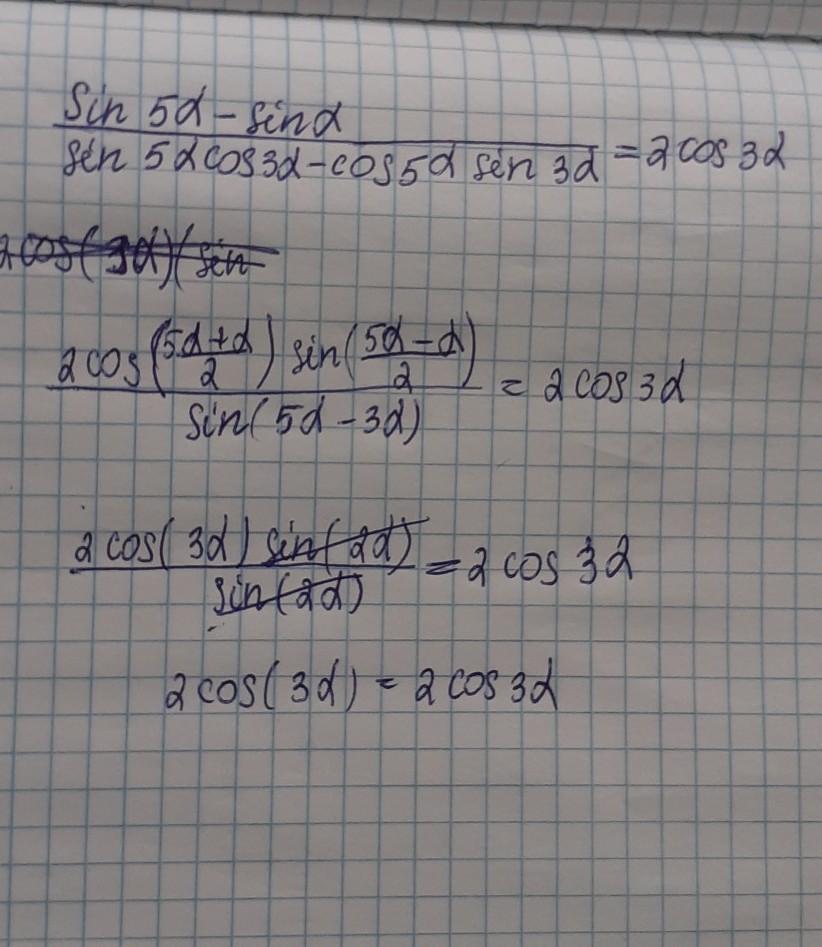 sin 5α - sin α / sin 5α cos 3α - cos 5α sin 3α = 2 cos 3α
2 cos(3α)(sin
2 cos((5α+α)/2) sin((5α-α)/2) / sin(5α-3α) = 2 cos 3α
2 cos(3α) sin(2α) / sin(2α) = 2 cos 3α
2 cos(3α) = 2 cos 3α